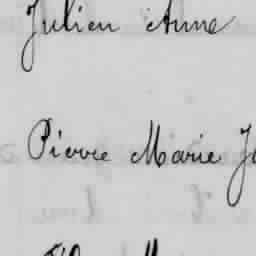 Julien Anne
Pierre Marie